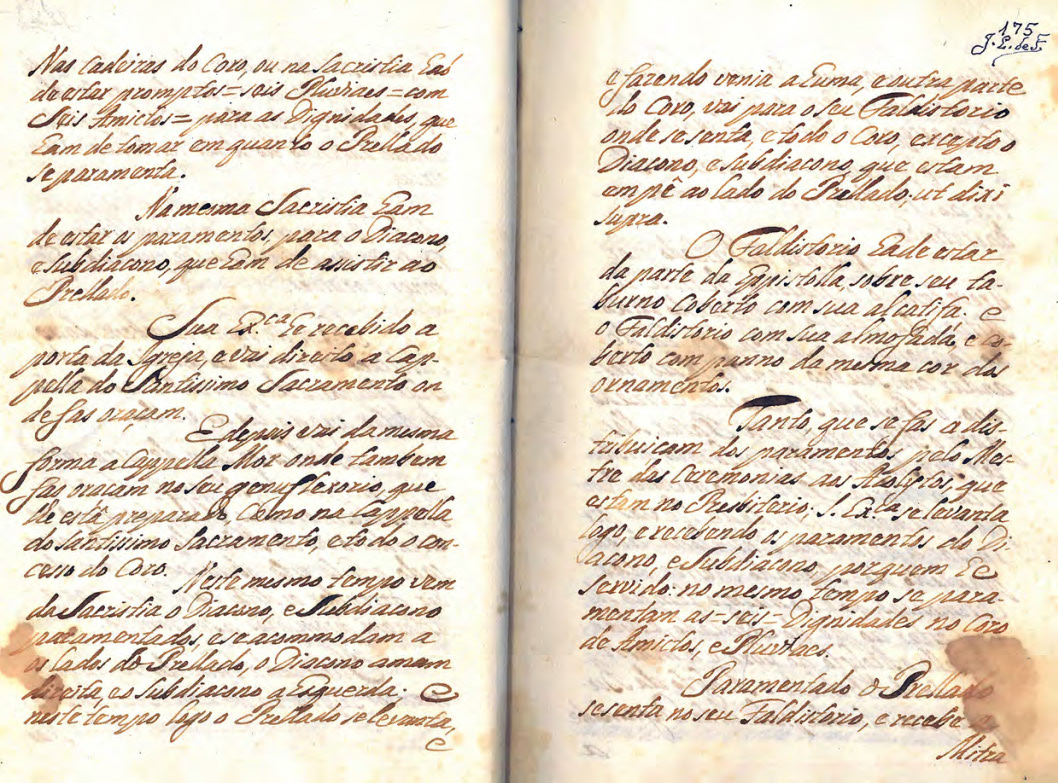 Nas Cadeiras do Coro, ou na Sacristia Eaó
de estar promptos = seis Pluviaes = com
Seis Amictos = para as Dignidades, que
Eam de tomar em quanto o Prellado
se paramenta.
Na mesma Sacristia Eam
de estar os paramentos, para o Diacono,
e Subdiacono, que Eam de assistir ao
Prellado.
Sua Ex.ca Ee recebido a
porta da Igreja, e vai direito a Cap-
pella do Santissimo Sacramento on
de fas oraçam.
E depois vai da mesma
forma a Cappella Mor onde tambem
fas oracam no seu genuflexorio, que
lhe està preparado, Como na Cappella
do Santissimo Sacramento, e todo o con-
cesso do Coro.
Neste mesmo tempo vem
da Sacristia o Diacono, e Subdiacono
paramentados, e se acommodam a
os lados do Prellado, o Diacono a mam
direita, e o Subdiacono a Esquerda. e
neste tempo logo o Prellado se levanta,
e
175
J. L. de F.
e fazendo venia a Euma, e outra parte
do Coro, vai para o seu Faldistorio
onde se senta, e todo o Coro, excepto o
Diacono, e Subdiacono, que estam
em pê ao lado do Prellado. ut dixi
supra.
O Faldistorio Eade estar
da parte da Epistolla sobre seu ta-
burno Coberto com sua alcatifa. e
o Faldistorio com sua almofada, e co-
berto com panno da mesma cor dos
ornamentos.
Tanto, que se fas a dis-
tribuicam dos paramentos pelo Mes-
tre das Ceremonias aos Acolytos, que
estam no Presbiterio; S. Ex.ca se levanta
logo, e recebendo os paramentos do Di-
acono, e Subdiacono, por quem Ee
servido: no mesmo tempo se para-
mentam as = seis = Dignidades no Coro
de Amictos, e Pluviaes.
Paramentado o Prellado
se senta no seu Faldistorio, e recebe a
Mitra